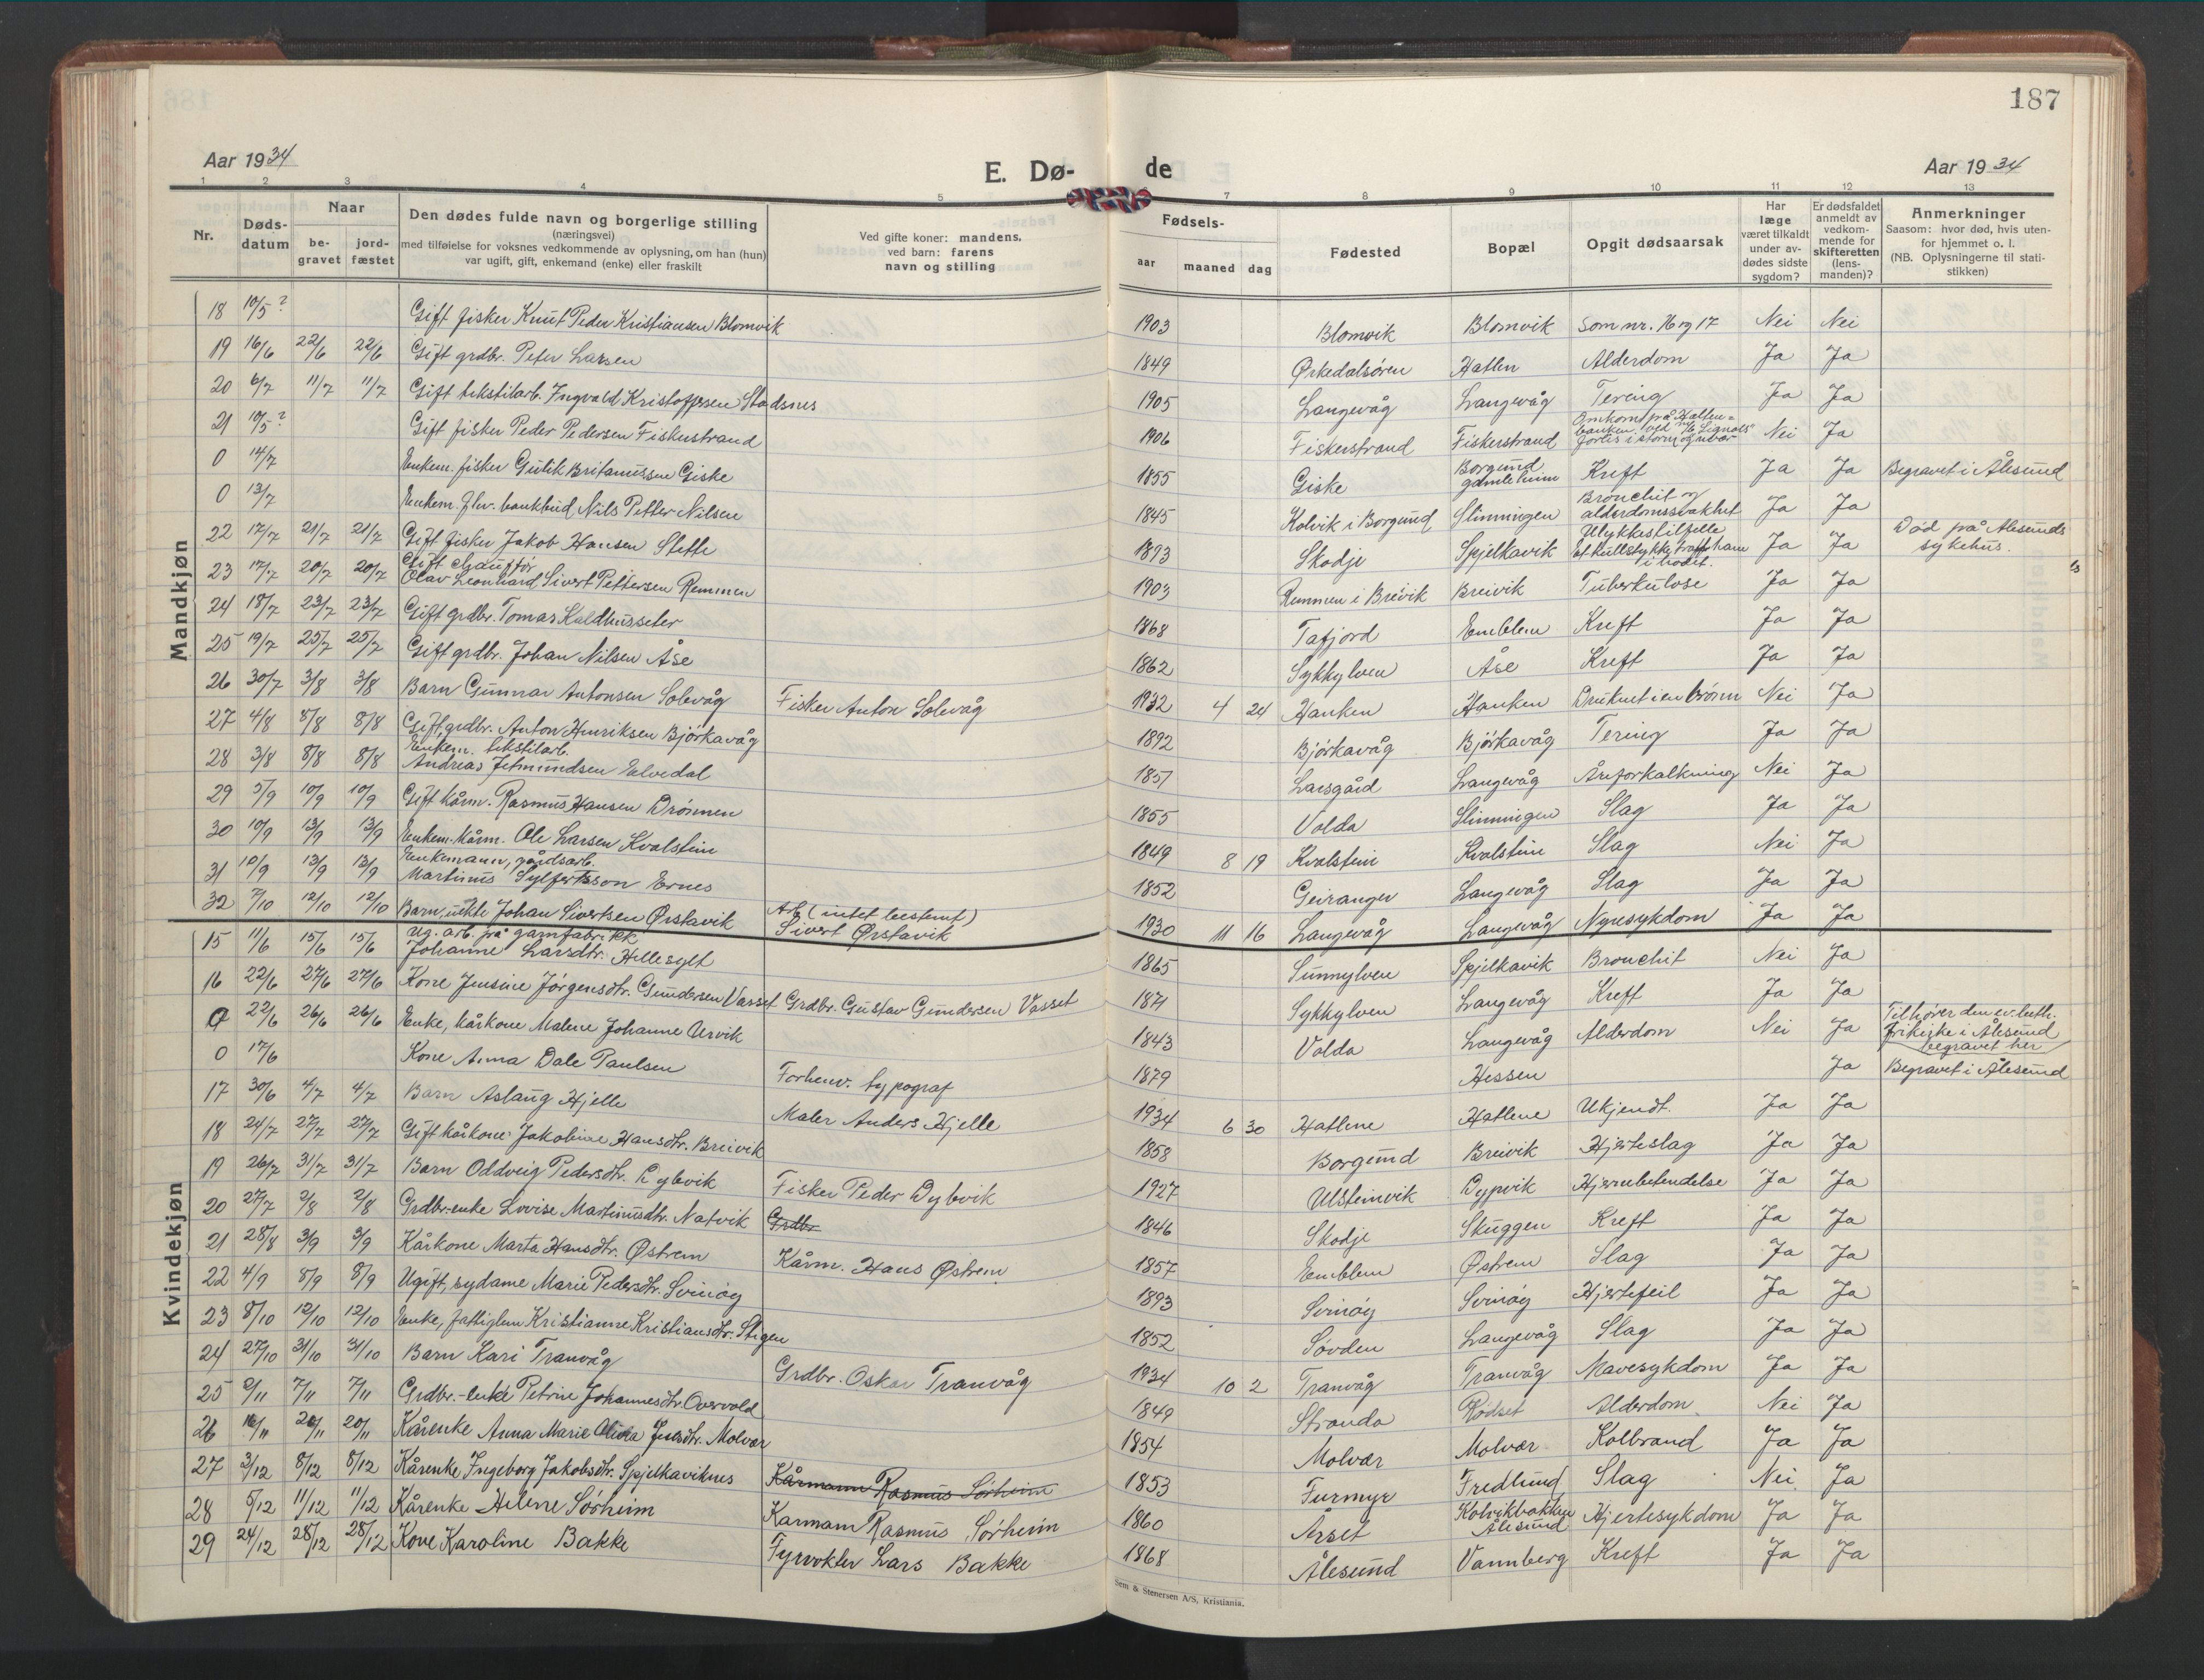 187
Aar 1934
E. Dø-
de
Aar 1934
1 2 3 4 5 7 8 9 10 11 12 13
Nr.
Døds-
datum
Naar
be-
gravet
jord-
fæstet
Den dødes fulde navn og borgerlige stilling
(næringsvei)
med tilføielse for voksnes vedkommende av oplysning, om han (hun)
var ugift, gift, enkemand (enke) eller fraskilt
Ved gifte koner: mandens.
ved barn: farens
navn og stilling
Fødsels-
aar
maaned
dag
Fødested
Bopæl
Opgit dødsaarsak
Har
læge
været tilkaldt
under av-
dødes sidste
sygdom?
Er dødsfaldet
anmeldt av
vedkom-
mende for
skifteretten
(lens-
manden)?
Anmerkninger
Saasom: hvor død, hvis uten-
for hjemmet o. l.
(NB. Oplysningerne til stati-
stikken)
Mandkjøn
18 10/5 ? Gift fisker Knut Peder Kristiansen Blomvik 1903 Blomvik Blomvik Som nr. 16 og 17 Nei Nei
19 16/6 22/6 22/6 Gift grdbr. Peter Larsen 1849 Ørkedalsøren Hatlen Alderdom Ja Ja
20 6/7 11/7 11/7 Gift tekstilarb. Ingvald Kristoffersen Stadsnes 1905 Langevåg Langevåg Tering Ja Ja
21 10/5 ? Gift fisker Peder Pedersen Fiskerstrand 1906 Fiskerstrand Fiskerstrand Omkom på Halten-
banken ved m/k
forlis i storm Nei Ja
0 14/7 Enkem. fisker Gutik Britanussen Giske 1855 Giske Borgund
gamleheim Kreft Ja Ja Begravet i Ålesund
0 13/7 Enkem. fhv. bankbud Nils Petter Nilsen 1845 Kolvik i Borgund Slinningen Bronchit og
alderdomssvakhet Ja Ja
22 17/7 21/7 21/7 Gift fisker Jakob Hansen Stette 1893 Skodje Spjelkavik Ulykkestilfelle
et kullstykke traff ham
i hodet. Ja Ja Død på Ålesunds
sykehus.
23 17/7 20/7 20/7 Gift chauffør
Olav Leonhard Sivert Pettersen Remmen 1903 Remmen i Breivik Breivik Tuberkulose Ja Ja
24 18/7 23/7 23/7 Gift grdbr. Tomas Kaldhusseter 1868 Tafjord Emblem Kreft Ja Ja
25 19/7 25/7 25/7 Gift grdbr. Johan Nilsen Åse 1862 Sykkylven Åse Kreft Ja Ja
26 30/7 3/8 3/8 Barn Gunnar Antonsen Solevåg Fisker Anton Solevåg 1932 4 24 Hanken Hanken Druknet i en brønn Nei Ja
27 4/8 8/8 8/8 Gift grdbr. Anton Henriksen Bjørkavåg 1892 Bjørkavåg Bjørkavåg Tering Ja Ja
28 3/8 8/8 8/8 Enkem. tekstilarb.
Andreas Jetmundsen Elvedal 1857 Larsgård Langevåg Åreforkalkning Nei Ja
29 5/9 10/9 10/9 Gift kårm. Rasmus Hansen Drønnen 1855 Volda Slinningen Slag Ja Ja
30 10/9 13/9 13/9 Enkem. kårm. Ole Larsen Kvalstein 1849 8 19 Kvalstein Kvalstein Slag Nei Ja
31 10/9 13/9 13/9 Enkemann, gårdsarb.
Martinus Sylfertsson Ernes 1852 Geiranger Langevåg Slag Ja Ja
32 7/10 12/10 12/10 Barn, uekte Johan Sivertsen Ørstavik Arb (intet bestemt)
Sivert Ørstavik 1930 11 16 Langevåg Langevåg Nyresykdom Ja Ja
Kvindekjøn
15 11/6 15/6 15/6 Ug. arb. på garnfabrikk
Johanne Larsdtr. Hellesylt 1865 Sunnylven Spjelkavik Bronchit Nei Ja
16 22/6 27/6 27/6 Kone Jensine Jørgensdtr. Gundersen Vasset Grdbr. Gustav Gundersen Vasset 1871 Sykkylven Langevåg Kreft Ja Ja
0 22/6 26/6 26/6 Enke, kårkone Malene Johanne Urvik 1843 Volda Langevåg Alderdom Nei Ja Tilhører den ev. luth.
frikirke i Ålesund
begravet her
0 17/6 Kone Anna Dale Paulsen Forhenv. typograf 1879 Hessen Ja Begravet i Ålesund
17 30/6 4/7 4/7 Barn Aslaug Hjelle Maler Anders Hjelle 1934 6 30 Hatlene Hatlene Ukjendt. Ja Ja
18 24/7 27/7 27/7 Gift kårkone Jakobine Hansdtr. Breivik 1858 Borgund Breivik Hjerteslag Ja Ja
19 26/7 31/7 31/7 Barn Oddveig Pedersdtr. Dybvik Fisker Peder Dybvik 1927 Ulsteinvik Dypvik Hjernebetendelse Ja Ja
20 27/7 2/8 2/8 Grdbr.-enke Lovise Martinusdtr. Natvik Grdbr. 1846 Skodje Skuggen Kreft Ja Ja
21 28/8 3/9 3/9 Kårkone Marta Hansdtr. Østrem Kårm. Hans Østrem 1857 Emblem Østrem Slag Ja Ja
22 4/9 8/9 8/9 Ugift, sydame Marie Pedersdtr. Svinøy 1893 Svinøy Svinøy Hjertefeil Ja Ja
23 8/10 12/10 12/10 Enke, fattiglem Kristianne Kristiansdtr. Stigen 1852 Søvden Langevåg Slag Ja Ja
24 27/10 31/10 31/10 Barn Kari Tranvåg Grdbr. Oskar Tranvåg 1934 10 2 Tranvåg Tranvåg Mavesykdom Ja Ja
25 2/11 7/11 7/11 Grdbr.-enke Petrine Johannesdtr. Overvold 1849 Stranda Rødset Alderdom Nei Ja
26 16/11 20/11 20/11 Kårenke Anna Marie Jensdtr. Molvær 1854 Molvær Molvær Kolbrand Ja Ja
27 3/12 8/12 8/12 Kårenke Ingeborg Jakobsdtr. Spjelkaviknes Kårmann Rasmus Sørheim 1853 Furmyr Fredlund Slag Nei Ja
28 5/12 11/12 11/12 Kårenke Helene Sørheim Karmann Rasmus Sørheim 1860 Årset Kolvikbakken
Ålesund Hjertesykdom Ja Ja
29 24/12 28/12 28/12 Kone Karoline Bakke Fyrvokter Lars Bakke 1868 Ålesund Vannberg Kreft Ja Ja
Sem & Stenersen A/S, Kristiania.